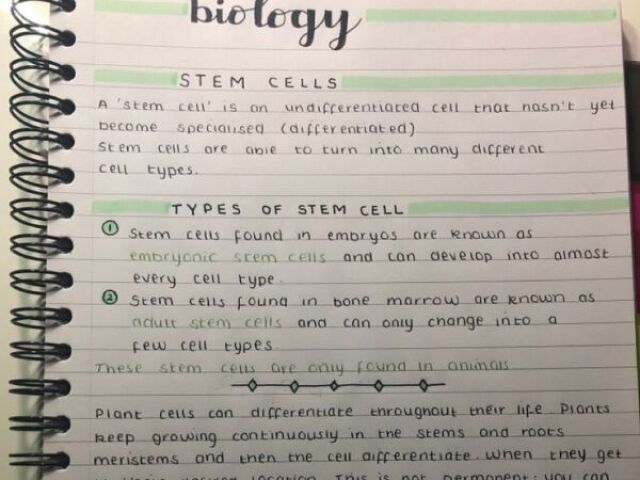 biology
STEM CELLS
A 'stem cell' is an undifferentiated cell that hasn't yet
become specialised (differentiated)
Stem cells are able to turn into many different
cell types.
TYPES OF STEM CELL
① Stem cells found in embryos are known as
embryonic stem cells and can develop into almost
every cell type.
② Stem cells found in bone marrow are known as
adult stem cells and can only change into a
few cell types.
These stem cells are only found in animals
Plant cells can differentiate throughout their life. Plants
keep growing continuously in the stems and roots
meristems and then the cell differentiate when they get
location. This is not permanent: you can